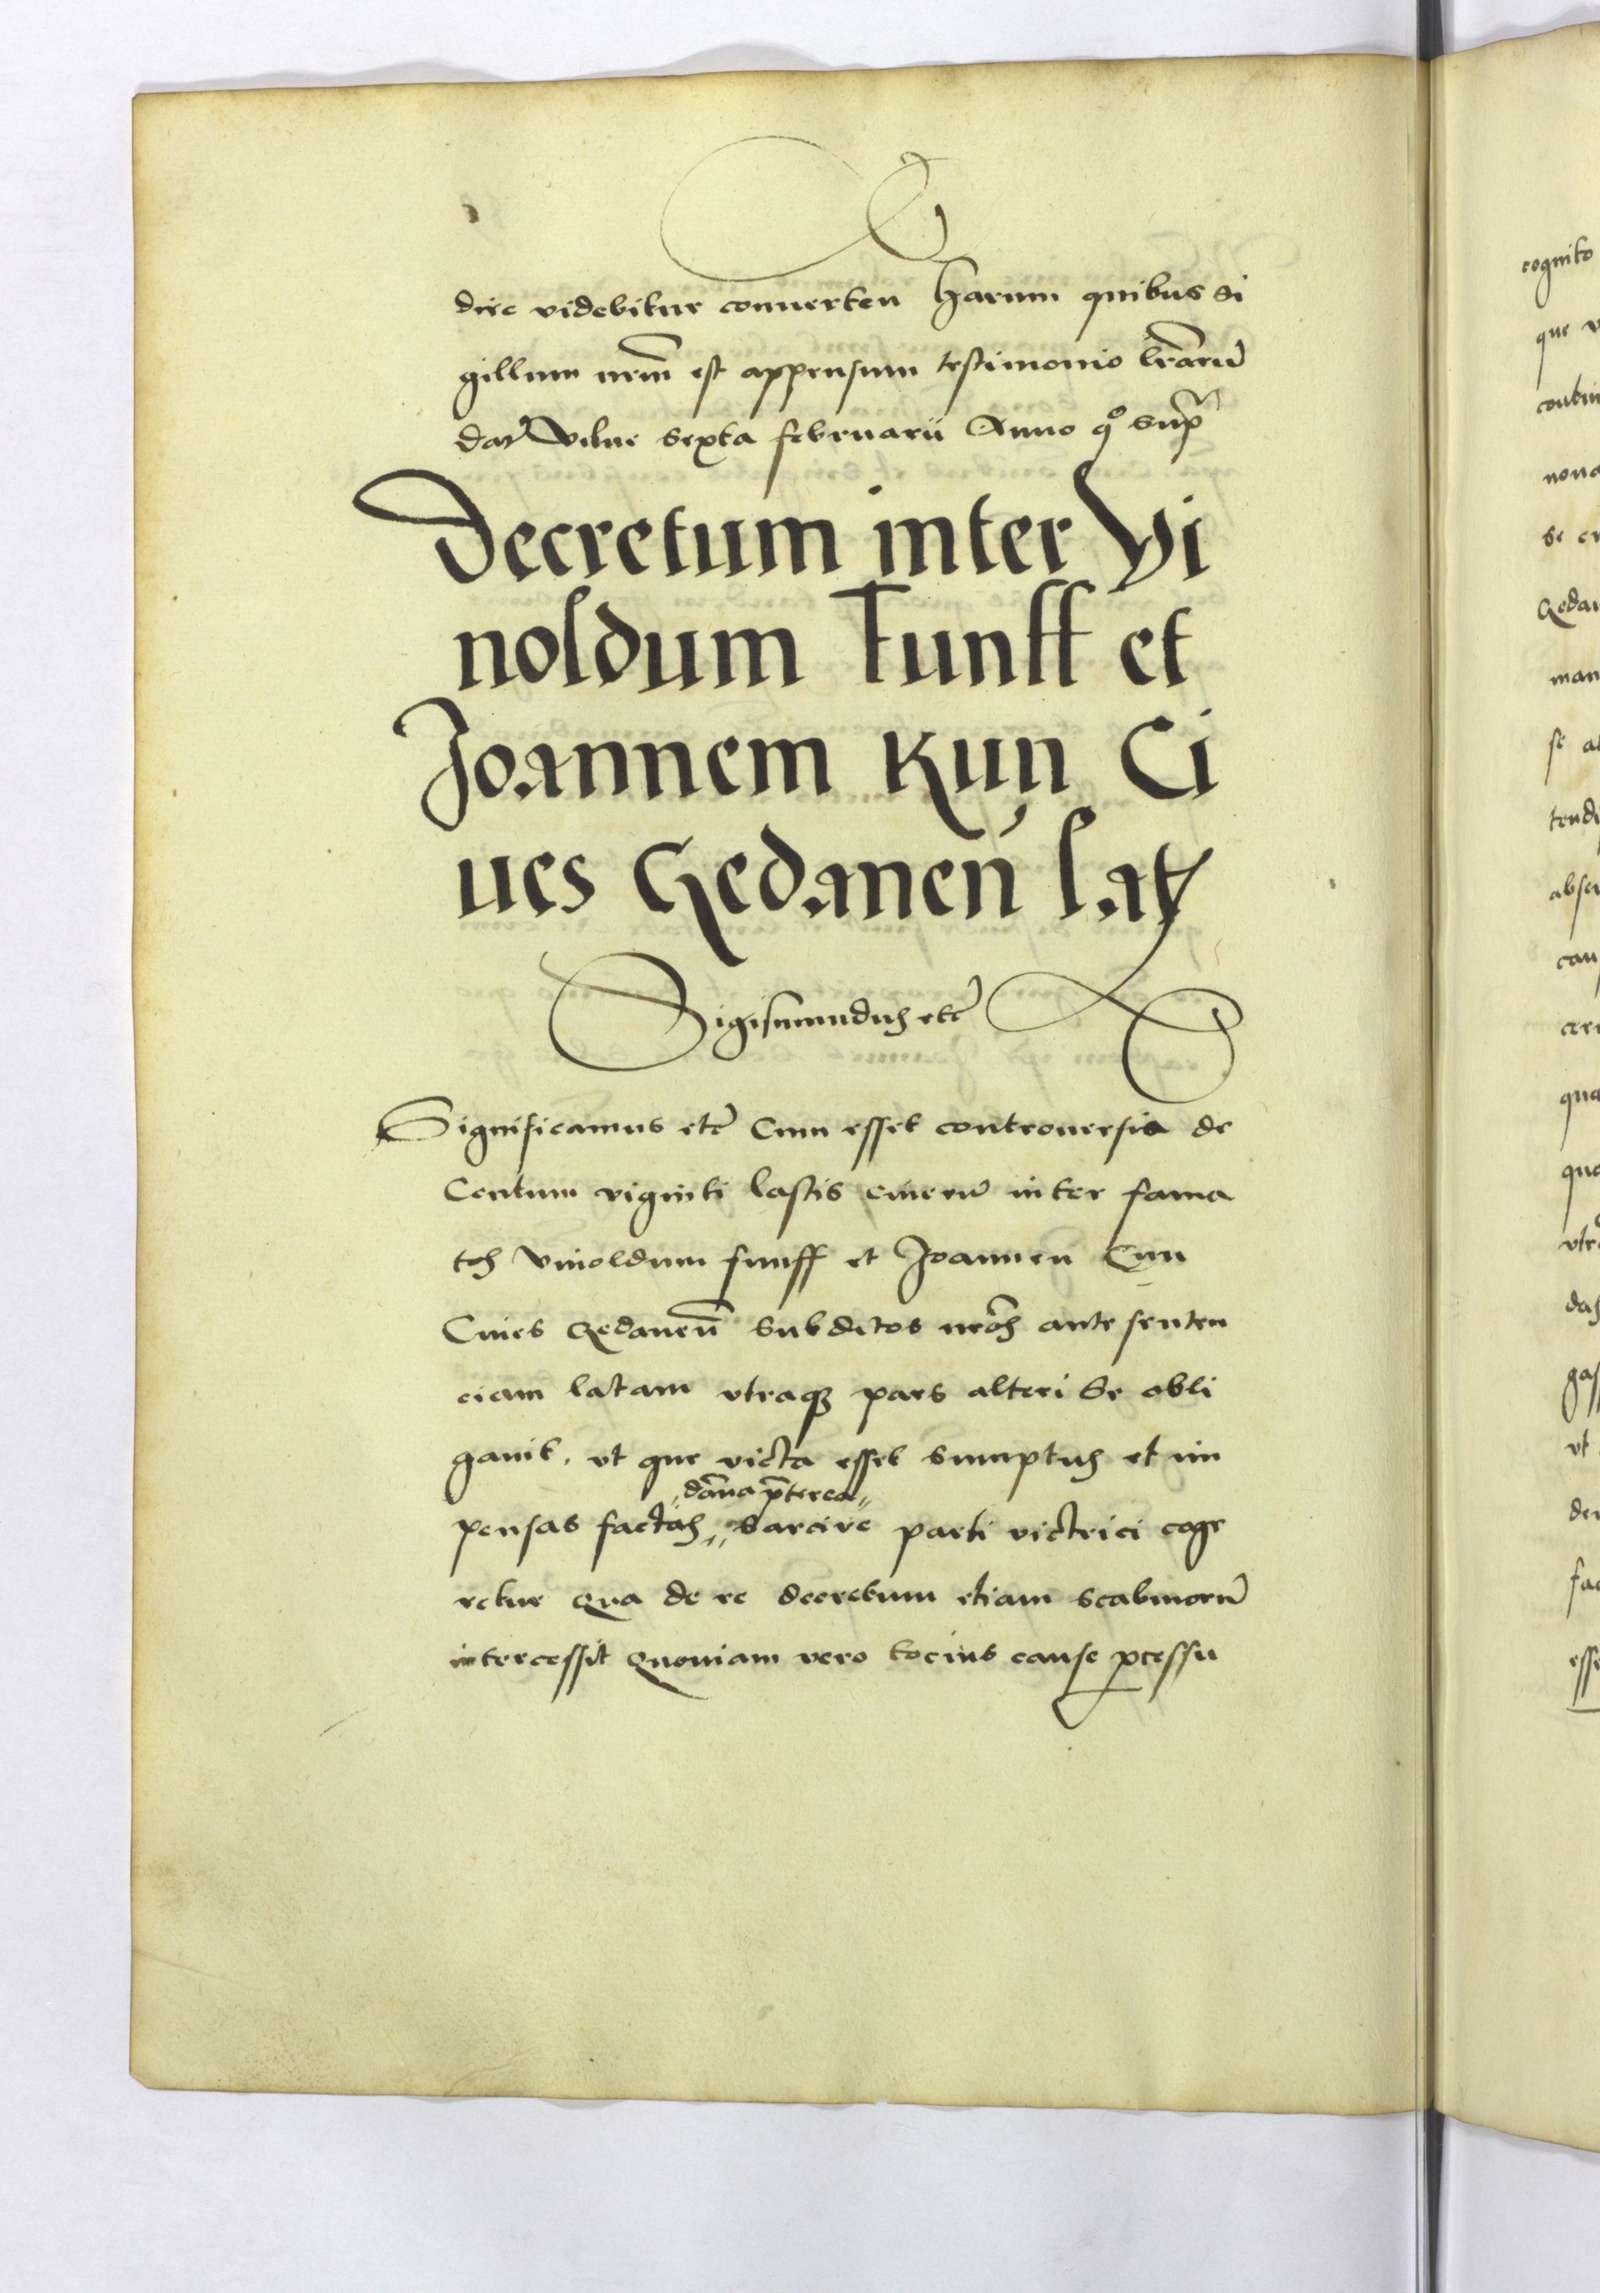 dire videbitur conuerten Harum quibus si
gillum nrm̄ est appensum testimonio lrarū
dat Vilne sexta februarii Anno qº supͣ
Decretum inter Vi
noldum Funff et
Joannem Kun Ci
ues Gedanen̄ lat
Sigismundus etc̄
Significamus etc̄ Cum esset controuersia de
Centum viginti lastis cinerū inter fama
tos Vinoldum funff et Joannen Cun
Ciues gedanen̄ subditos nrōs ante senten
ciam latam vtraqꝫ pars alteri se obli
gauit, vt que victa esset sumptus et im
dāna p̄terea
pensas factas sarcire parti victrici coge
retur Qua de re decretum etiam scabinorū
intercessit Quoniam vero tocius cause ꝓcessu
cognito
que
nona
Gedan
man
se
tendi
qua
vt